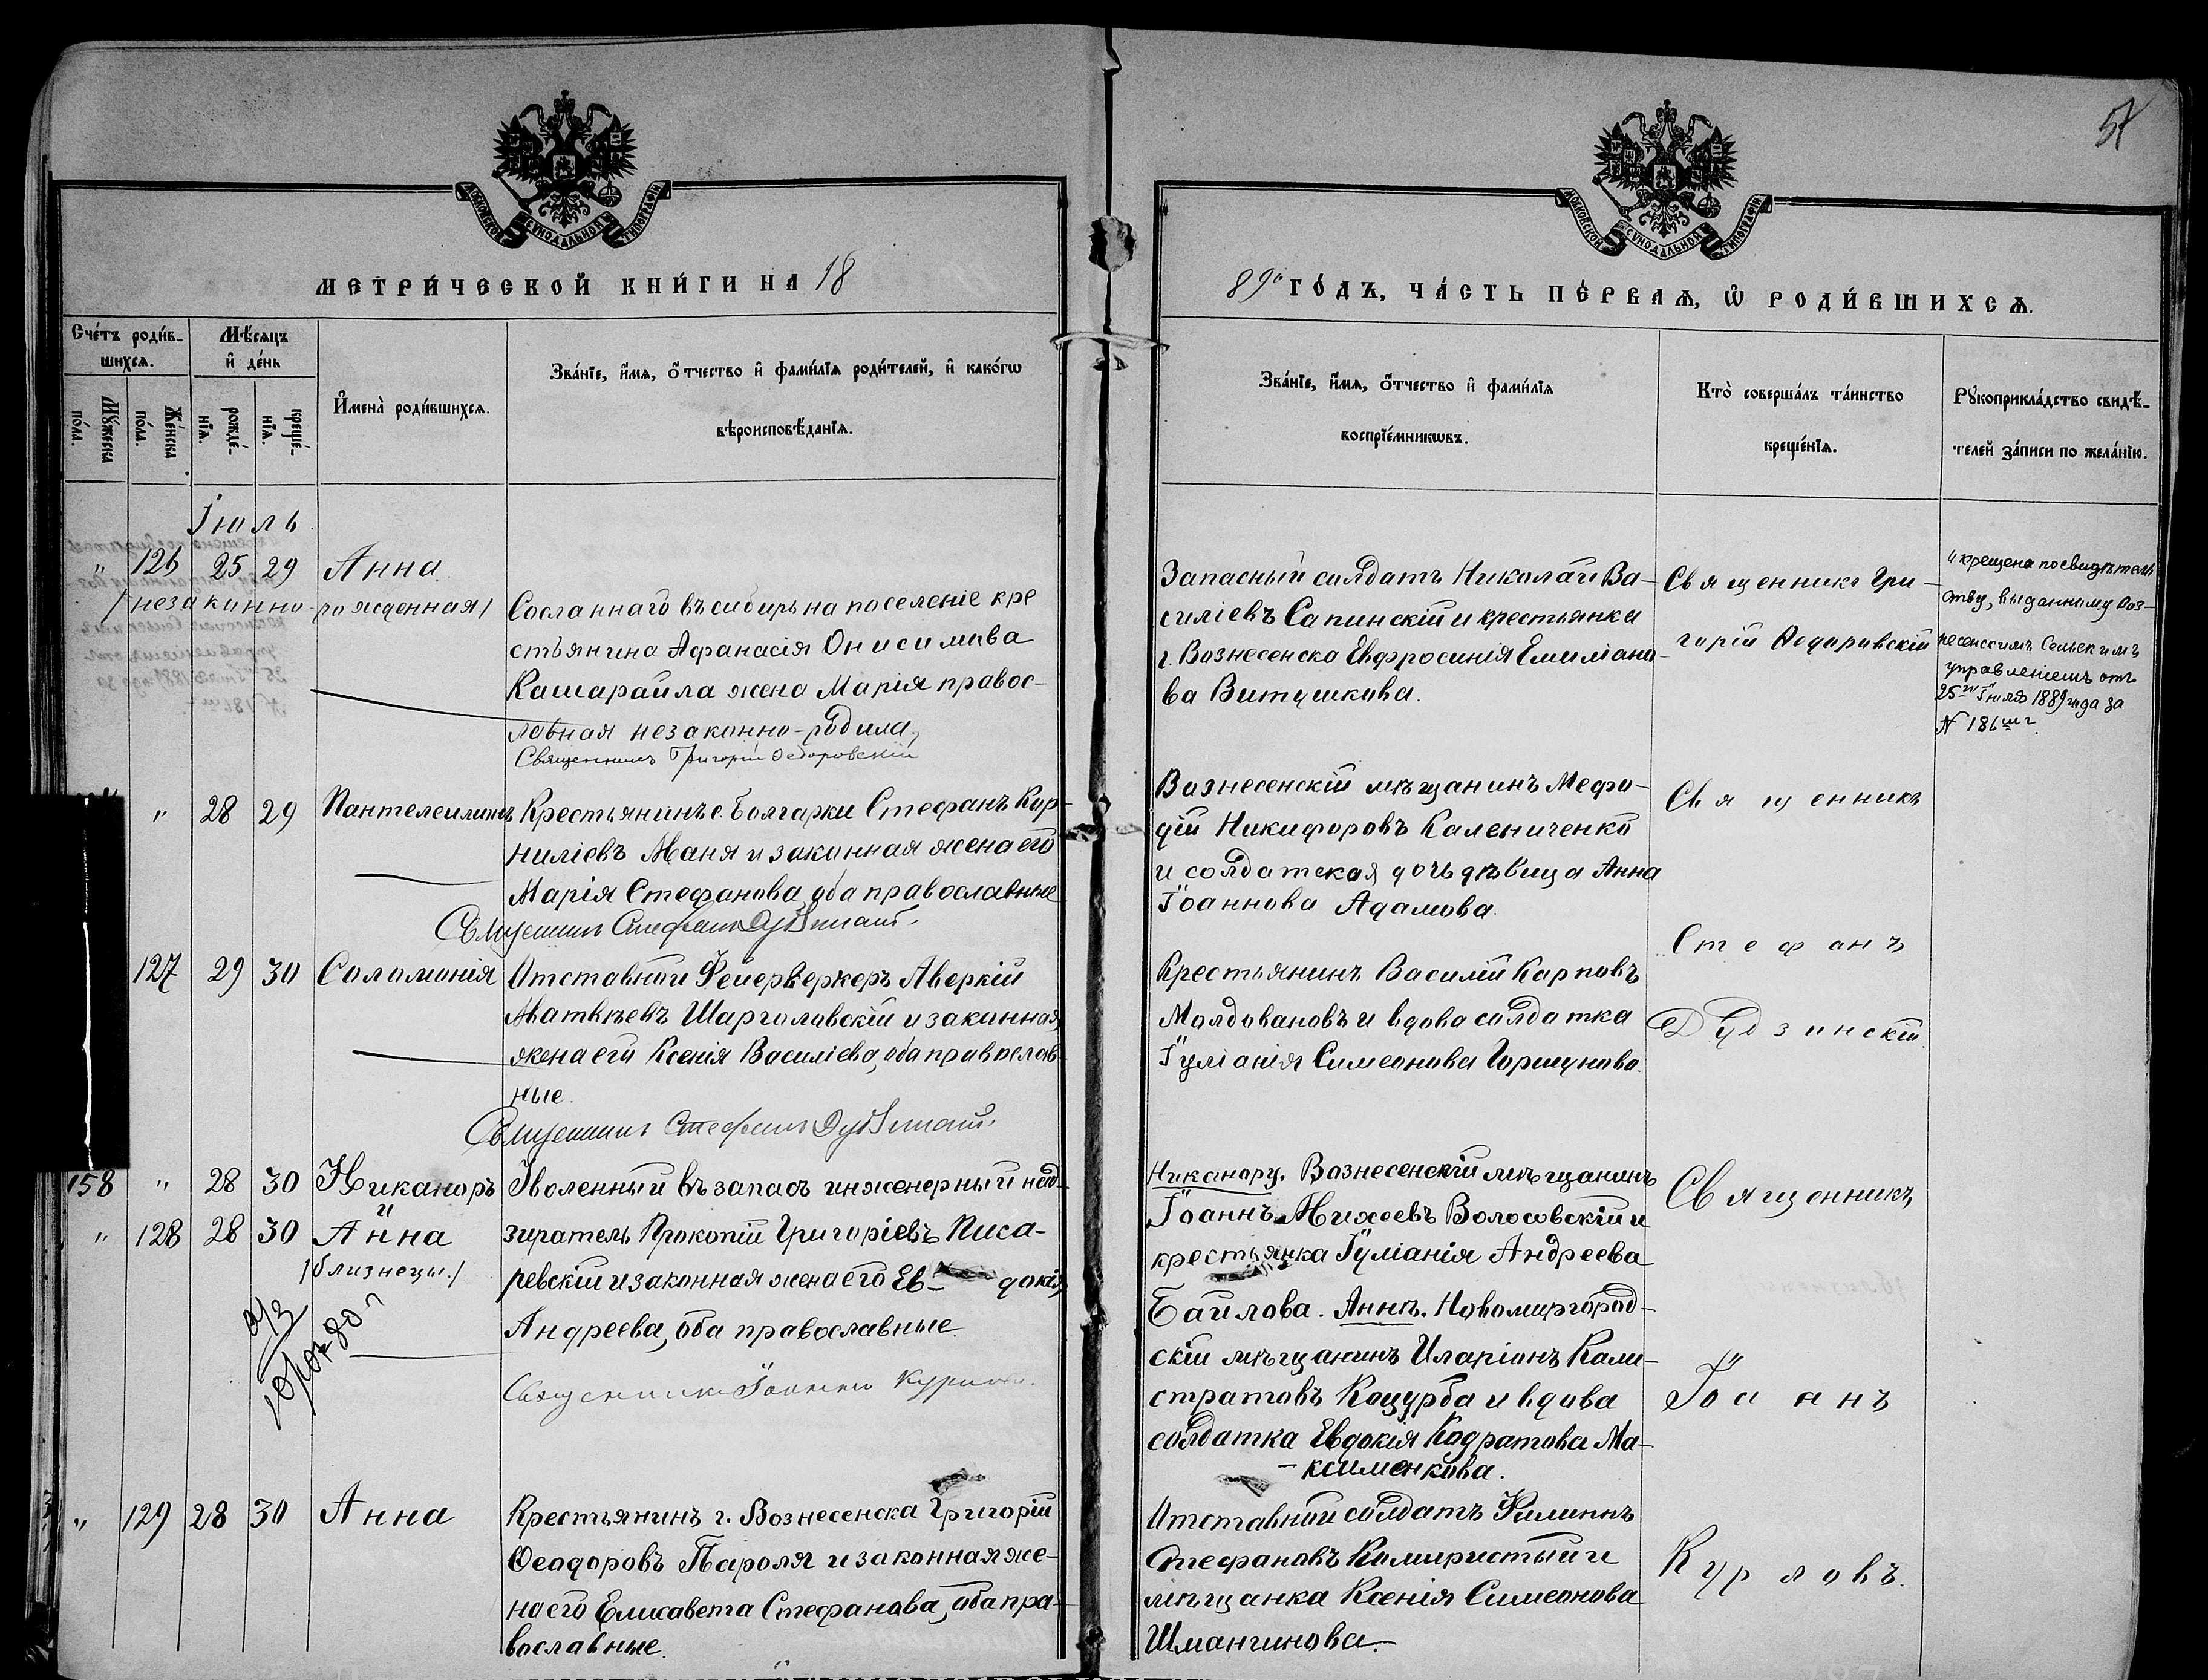 57
МОСКОВСКОЙ СѴНОДАЛЬНОЙ ТИПОГРАФІИ
МОСКОВСКОЙ СѴНОДАЛЬНОЙ ТИПОГРАФІИ
МЕТРИ́ЧЕСКОЙ КНИ́ГИ НА 18
89го ГО́ДЪ, ЧА́СТЬ ПЕ́РВАѦ, Ѡ҆ РОДИ́ВШИХСѦ.
Сче́тъ роди́в-
шихсѧ.
Мꙋ́жеска по́ла.
Же́нска по́ла.
Мѣ́сѧцъ
и҆ де́нь
рожде́-
нїѧ.
креще́-
нїѧ.
И҆мена̀ роди́вшихсѧ.
Зва́нїе, и҆́мѧ, ѻ҆́тчество и҆ фами́лїѧ роди́телей, и҆ како́гѡ
вѣроисповѣ́данїѧ.
Зва́нїе, и҆́мѧ, ѻ҆́тчество и҆ фами́лїѧ
воспрїе́мникѡвъ.
Кто̀ соверша́лъ та́инство
креще́нїѧ.
Рꙋкоприкла́дство свидѣ́-
телей за́писи по жела́нїю.
Іюль
" 126 25 29 Анна
/незаконно-рожденная/
Сосланнаго въ сибирь на поселеніе кре
стьянина Афанасія Онисимова
Кашарайла жена Марія правос-
лавная незаконно-родила,
Священникъ Григорій Ѳедоровскій
Запасный солдатъ Николай Ва-
силіевъ Сапинскій и крестьянка
г. Вознесенска Евфросинія Емиліано-
ва Витушкова.
Священникъ Гри-
горій Ѳедоровскій
"крещена по свидѣтель
ству, выданному Воз-
несенскимъ Сельскимъ
управленіемъ отъ
25го Іюля 1889 года за
№ 186мъ
" 28 29 Пантелеимонъ
Крестьянинъ с. Болгарки Стефанъ Кор-
ниліевъ Маня и законная жена его
Марія Стефанова, оба православные
Священникъ Стефанъ Дудзинскій.
Вознесенскій мѣщанинъ Мефо-
дій Никифоровъ Калениченко
и солдатская дочь дѣвица Анна
Іоаннова Адамова.
Священникъ
Стефанъ
Дудзинскій.
127 29 30 Соломонія
Отставной Фейерверкеръ Аверкій
Матвѣевъ Шарголовскій и законная
жена его Ксенія Василіева, оба православ-
ные.
Священникъ Стефанъ Дудзинскій.
Крестьянинъ Василій Карповъ
Молдовановъ и вдова солдатка
Іуліанія Симеонова Горшунова.
158 " 28 30 Никаноръ
и
" 128 28 30 Анна
/близнецы./
Уволенный въ запасъ инженерный над-
зиратель Прокопій Григоріевъ Писа-
ревскій и законная жена его Ев- докія
Андреева, оба православные.
Священникъ Іоаннъ Курловъ.
Никанору. Вознесенскій мѣщанинъ
Іоаннъ Михеевъ Волосовскій и
крестьянка Іуліанія Андреева
Байлова. Аннѣ. Новомиргород-
скій мѣщанинъ Иларіонъ Кали-
стратовъ Коцурба и вдова
солдатка Евдокія Кодратова Ма-
-ксименкова.
Священникъ
Іоаннъ
Курловъ.
" 129 28 30 Анна
Крестьянинъ г. Вознесенска Григорій
Ѳеодоровъ Пароля и законная же-
на его Елисавета Стефанова, оба пра-
вославные.
Отставной солдатъ Филиппъ
Стефановъ Камиристый и
мѣщанка Ксенія Симеонова
Шмангинова.